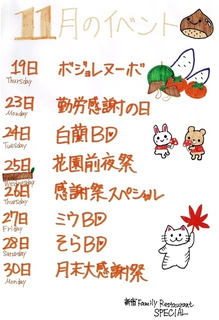 11月のイベント
19日 ボジョレヌーボ
Thursday
23日 勤労感謝の日
Monday
24日 白蘭BD
Tuesday
25日 花園前夜祭
Wednesday
26日 感謝祭スペシャル
Thursday
27日 ミウBD
Friday
28日 そらBD
Saturday
30日 月末大感謝祭
Monday
新宿Family Restaurant
SPECIAL